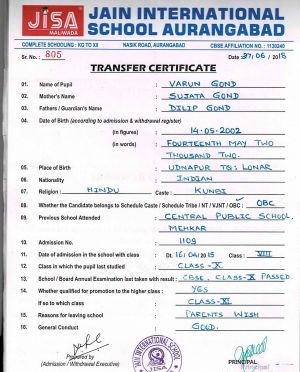 JISA
MALIWADA
JAIN INTERNATIONAL
SCHOOL AURANGABAD
COMPLETE SCHOOLING : KG TO XII NASIK ROAD, AURANGABAD CBSE AFFILIATION NO. : 1130240
Sr. No. : 805 Date : 27/06/2015
TRANSFER CERTIFICATE
01. Name of Pupil : VARUN GOND
02. Mother's Name : SUJATA GOND
03. Fathers / Guardian's Name : DILIP GOND
04. Date of Birth (according to admission & withdrawal register)
(in figures) : 14-05-2002
(in words) : FOURTEENTH MAY TWO
THOUSAND TWO.
05. Place of Birth : UDNAPUR TQ: LONAR
06. Nationality : INDIAN
07. Religion : HINDU Caste : KUNBI
08. Whether the Candidate belongs to Schedule Caste / Schedule Tribe / NT / VJNT / OBC : OBC
09. Previous School Attended : CENTRAL PUBLIC SCHOOL,
MEHKAR
10. Admission No. : 1109
11. Date of admission in the school with class : Dt. 16/04/2015 Class : VIII
12. Class in which the pupil last studied : CLASS-X
13. School / Board Annual Examination last taken with result : CBSE, CLASS-X PASSED.
14. Whether qualified for promotion to the higher class : YES
If so to which class : CLASS-XI.
15. Reasons for leaving school : PARENTS WISH
16. General Conduct : GOOD.
Prepared by
(Admission / Withdrawal Executive)
JAIN INTERNATIONAL SCHOOL
JISA
PRINCIPAL
Principal